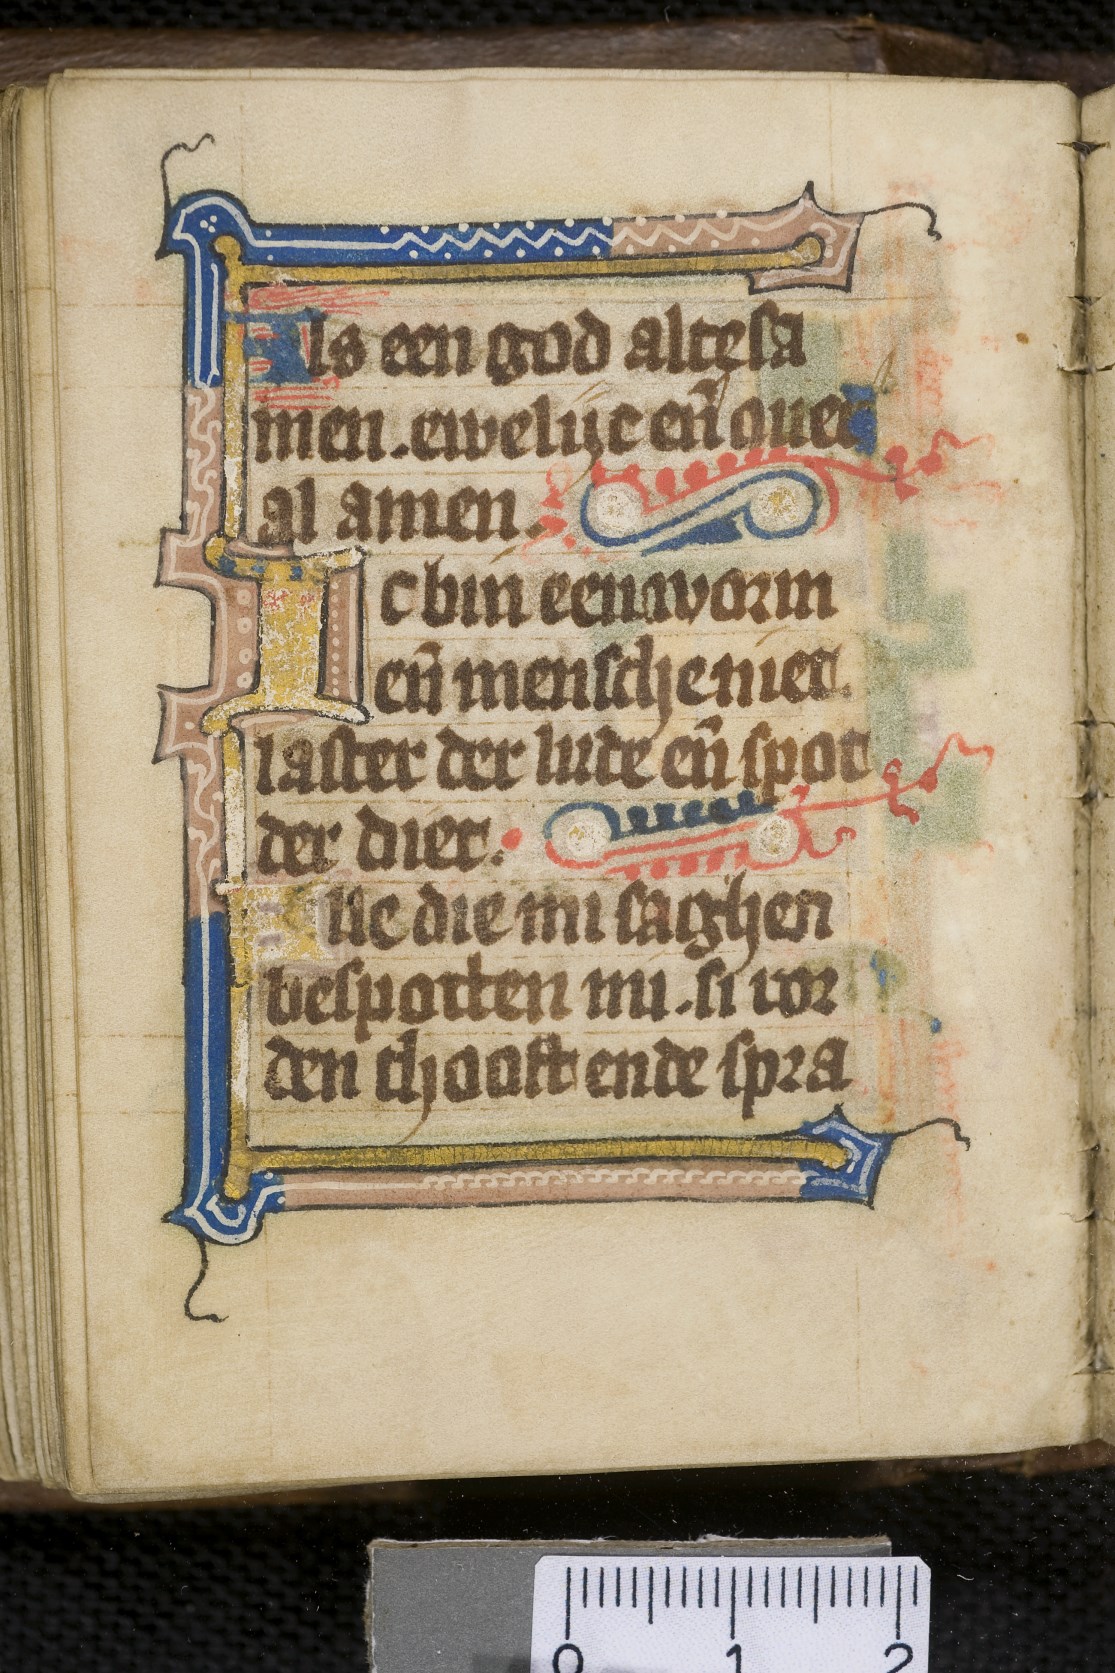 Als een god altesa
men. ewelijc en̄ ouer
al amen.
Ic bin een worm
en̄ mensche niet.
laster der lude en̄ spot
der diet.
Alle die mi saghen
bespotten mi. si wor
den thooft ende spra
0 1 2